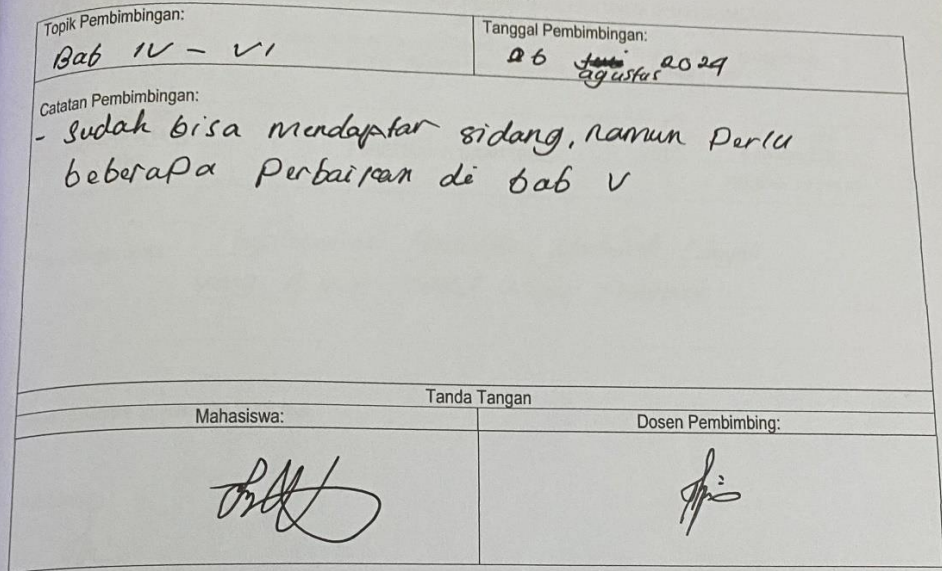 Topik Pembimbingan:
Bab IV - VI
Tanggal Pembimbingan:
26 agustus 2024
Catatan Pembimbingan:
- Sudah bisa mendaftar sidang, namun Perlu
beberapa Perbaikan di bab V
Tanda Tangan
Mahasiswa:
Dosen Pembimbing: